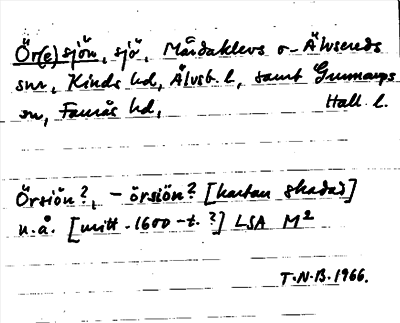 Ör(e)sjön, sjö, Mårdaklevs o. Älvsereds
snr, Kinds hd, Älvsb. l., samt Gunnarps
sn, Faurås hd, Hall. l.
Örsiön?, - örsiön? [kartan skadad]
u.å. [mitt. 1600-t.?] LSA M²
T.N.B. 1966.